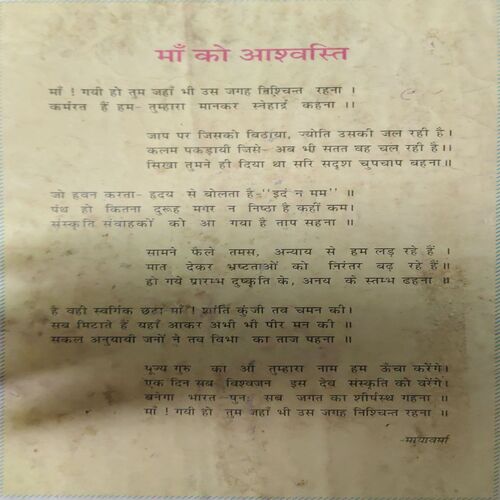 माँ को आश्वस्ति
माँ ! गयी हो तुम जहाँ भी उस जगह निश्चिन्त रहना ।
कर्मरत हैं हम- तुम्हारा मानकर स्नेहार्द्र कहना ।।
जाप पर जिसको बिठाया, ज्योति उसकी जल रही है।
कलम पकड़ायी जिसे- अब भी सतत वह चल रही है।।
सिखा तुमने ही दिया था सरि सदृश चुपचाप बहना॥
जो हवन करता- हृदय से बोलता है-"इदं न मम" ॥
पंथ हो कितना दुरूह मगर न निष्ठा है कहीं कम।
संस्कृति संवाहकों को आ गया है ताप सहना ॥
सामने फैले तमस, अन्याय से हम लड़ रहे हैं ।
मात देकर भ्रष्टताओं को निरंतर बढ़ रहे हैं॥
हो गये प्रारम्भ दुष्कृति के, अनय के स्तम्भ ढहना ॥
है वही स्वर्गिक छठा माँ ! शांति कुंजी तव चमन की।
सब मिटाते हैं यहाँ आकर अभी भी पीर मन की ॥
सकल अनुयायी जनों ने तव विभा का ताज पहना ॥
पूज्य गुरु का औ तुम्हारा नाम हम ऊँचा करेंगे।
एक दिन सब विश्वजन इस देव संस्कृति को वरेंगे।
बनेगा भारत पुनः सब जगत का शीर्षस्थ गहना ॥
माँ ! गयी हो तुम जहाँ भी उस जगह निश्चिन्त रहना ॥
-मायावर्मा